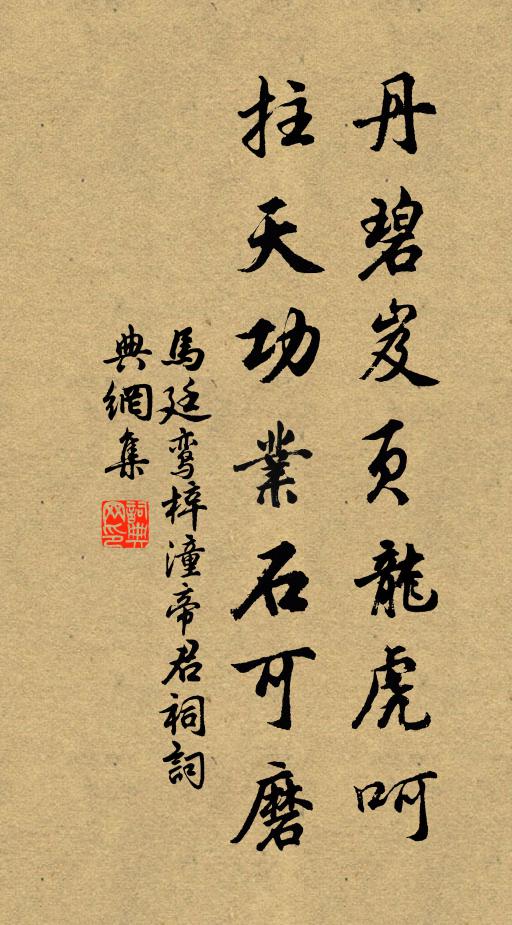 丹碧岌页龍虎呵
拄天功業石可磨
馬廷鸾梓潼帝君祠詞
典網集
詞典網印